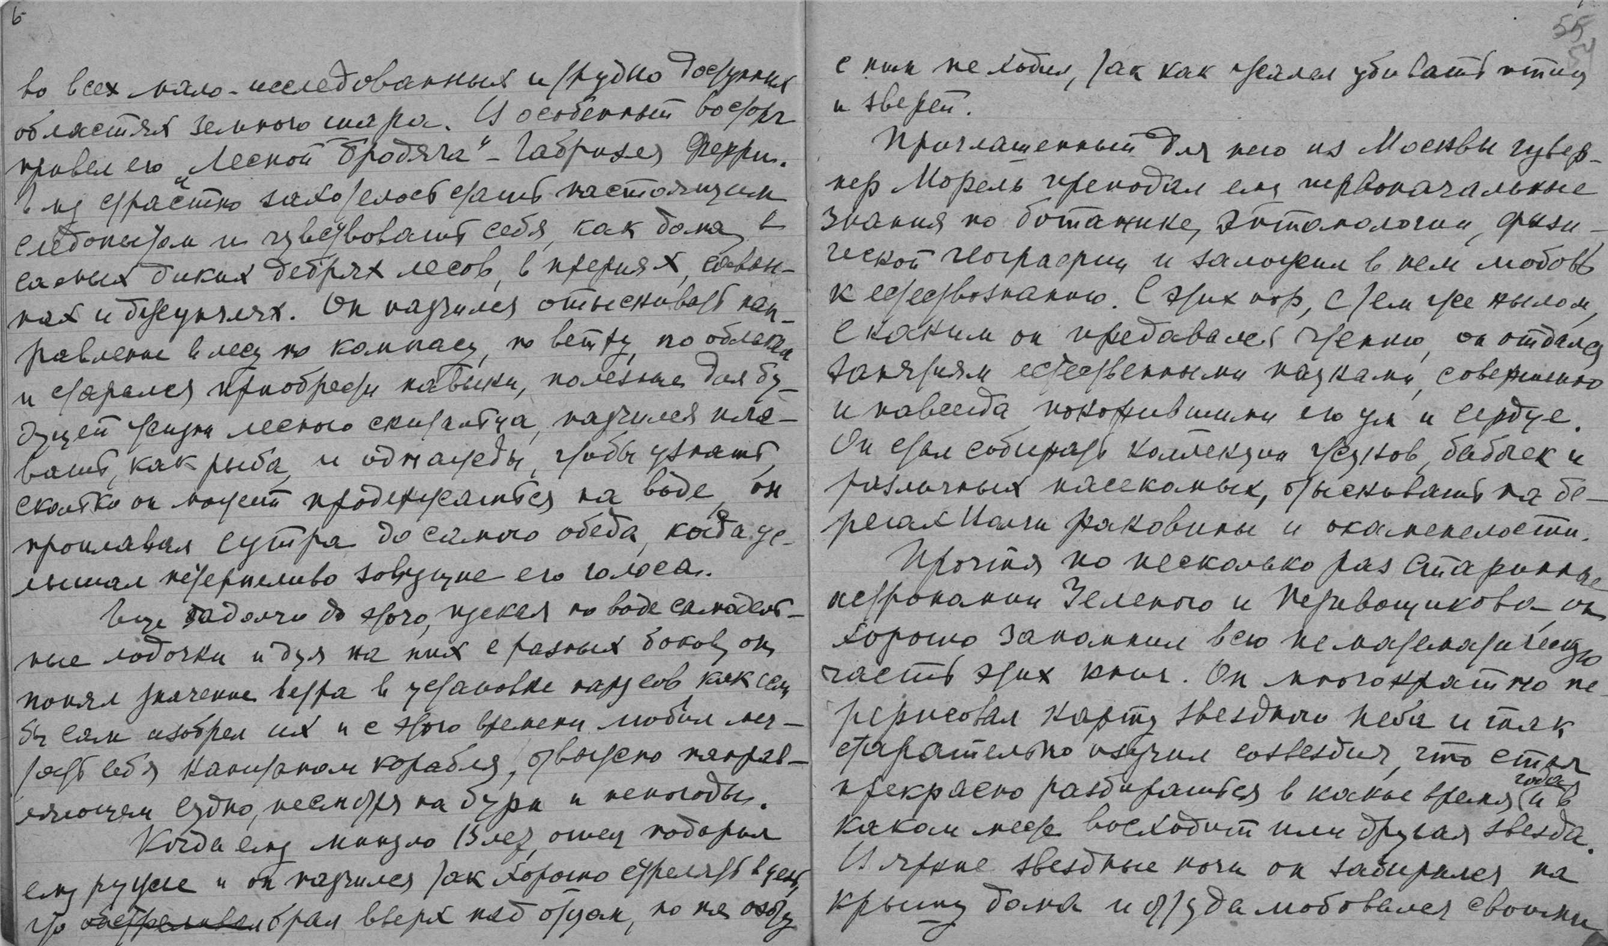 6
во всех мало-исследованных и трудно доступных
областях земного шара. И особенный восторг
привел его „Лесной бродяга“ - Габриэля Ферри.
Ему страстно захотелось стать настоящим
следопытом и чувствовать себя, как дома, в
самых диких дебрях лесов, в прериях, саван-
нах и джунглях. Он научился отыскивать нап-
равление в лесу по компасу, по ветру, по облакам
и старался приобрести навыки, полезные для бу-
дущей жизни лесного скитальца, научился пла-
вать, как рыба, и однажды, чтобы узнать,
сколько он может продержаться на воде, он
проплавал с утра до самого обеда, когда ус-
лышал нетерпеливо зовущие его голоса.
Еще задолго до этого, пуская по воде самодель-
ные лодочки и дуя на них с разных боков, он
понял значение ветра в установке парусов, как если
бы сам изобрел их и с этого времени любил меч-
тать себя капитаном корабля, отважно направ-
ляющем судно, несмотря на бури и непогоды.
Когда ему минуло 13 лет, отец подарил
ему ружье и он научился так хорошо стрелять в цель,
что брал вверх над отцом, но на охоту
55
54
с ним не ходил, так как жалел убивать птиц
и зверей.
Приглашенный для него из Москвы гувер-
нер Морель преподал ему первоначальные
знания по ботанике, энтомологии, физи-
ческой географии и заложил в нем любовь
к естествознанию. С этих пор, с тем же пылом,
с каким он предавался чтению, он отдался
занятиям естественными науками, совершенно
и навсегда покорившими его ум и сердце.
Он стал собирать коллекции жуков, бабочек и
различных насекомых, отыскивать на бе-
регах раковины и окаменелости.
Прочтя по несколько раз старинные
астрономии Зеленого и Перевощикова он
хорошо запомнил всю нематематическую
часть этих книг. Он многократно пе-
рерисовал карту звездного неба и так
старательно изучил созвездия, что стал
прекрасно разбираться в какое время года и в
каком месте восходит или другая звезда.
И яркие звездные ночи он забирался на
крышу дома и оттуда любовался своими